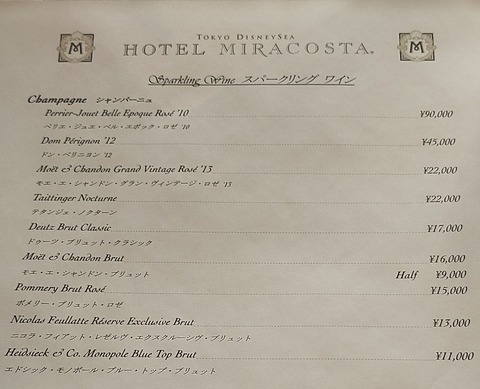 M
M
TOKYO DISNEYSEA
HOTEL MIRACOSTA®
Sparkling Wine スパークリング ワイン
Champagne シャンパーニュ
Perrier-Jouet Belle Epoque Rosé '10 ¥90,000
ペリエ・ジュエ・ベル・エポック・ロゼ '10
Dom Pérignon '12 ¥45,000
ドン・ペリニヨン '12
Moët & Chandon Grand Vintage Rosé '13 ¥22,000
モエ・エ・シャンドン・グラン・ヴィンテージ・ロゼ '13
Taittinger Nocturne ¥22,000
テタンジェ・ノクターン
Deutz Brut Classic ¥17,000
ドゥーツ・ブリュット・クラシック
Moët & Chandon Brut ¥16,000
モエ・エ・シャンドン・ブリュット Half ¥9,000
Pommery Brut Rosé ¥15,000
ポメリー・ブリュット・ロゼ
Nicolas Feuillatte Réserve Exclusive Brut ¥13,000
ニコラ・フィアット・レゼルヴ・エクスクルーシヴ・ブリュット
Heidsieck & Co. Monopole Blue Top Brut ¥11,000
エドシック・モノポール・ブルー・トップ・ブリュット